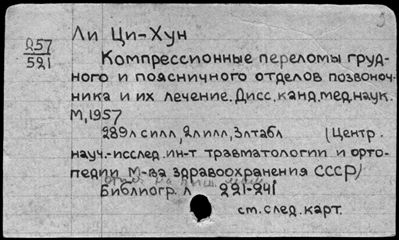 Д57
521
Ли Ци-Хун
Компрессионные переломы груд-
ного и поясничного отделов позвоноч-
ника и их лечение. Дисс. канд. мед. наук.
М, 1957
289л силл, 2л илл, 3л табл (Центр.
науч.-исслед. ин-т травматологии и орто-
педии М-ва здравоохранения СССР)
Библиогр. л 221-241
см. след. карт.